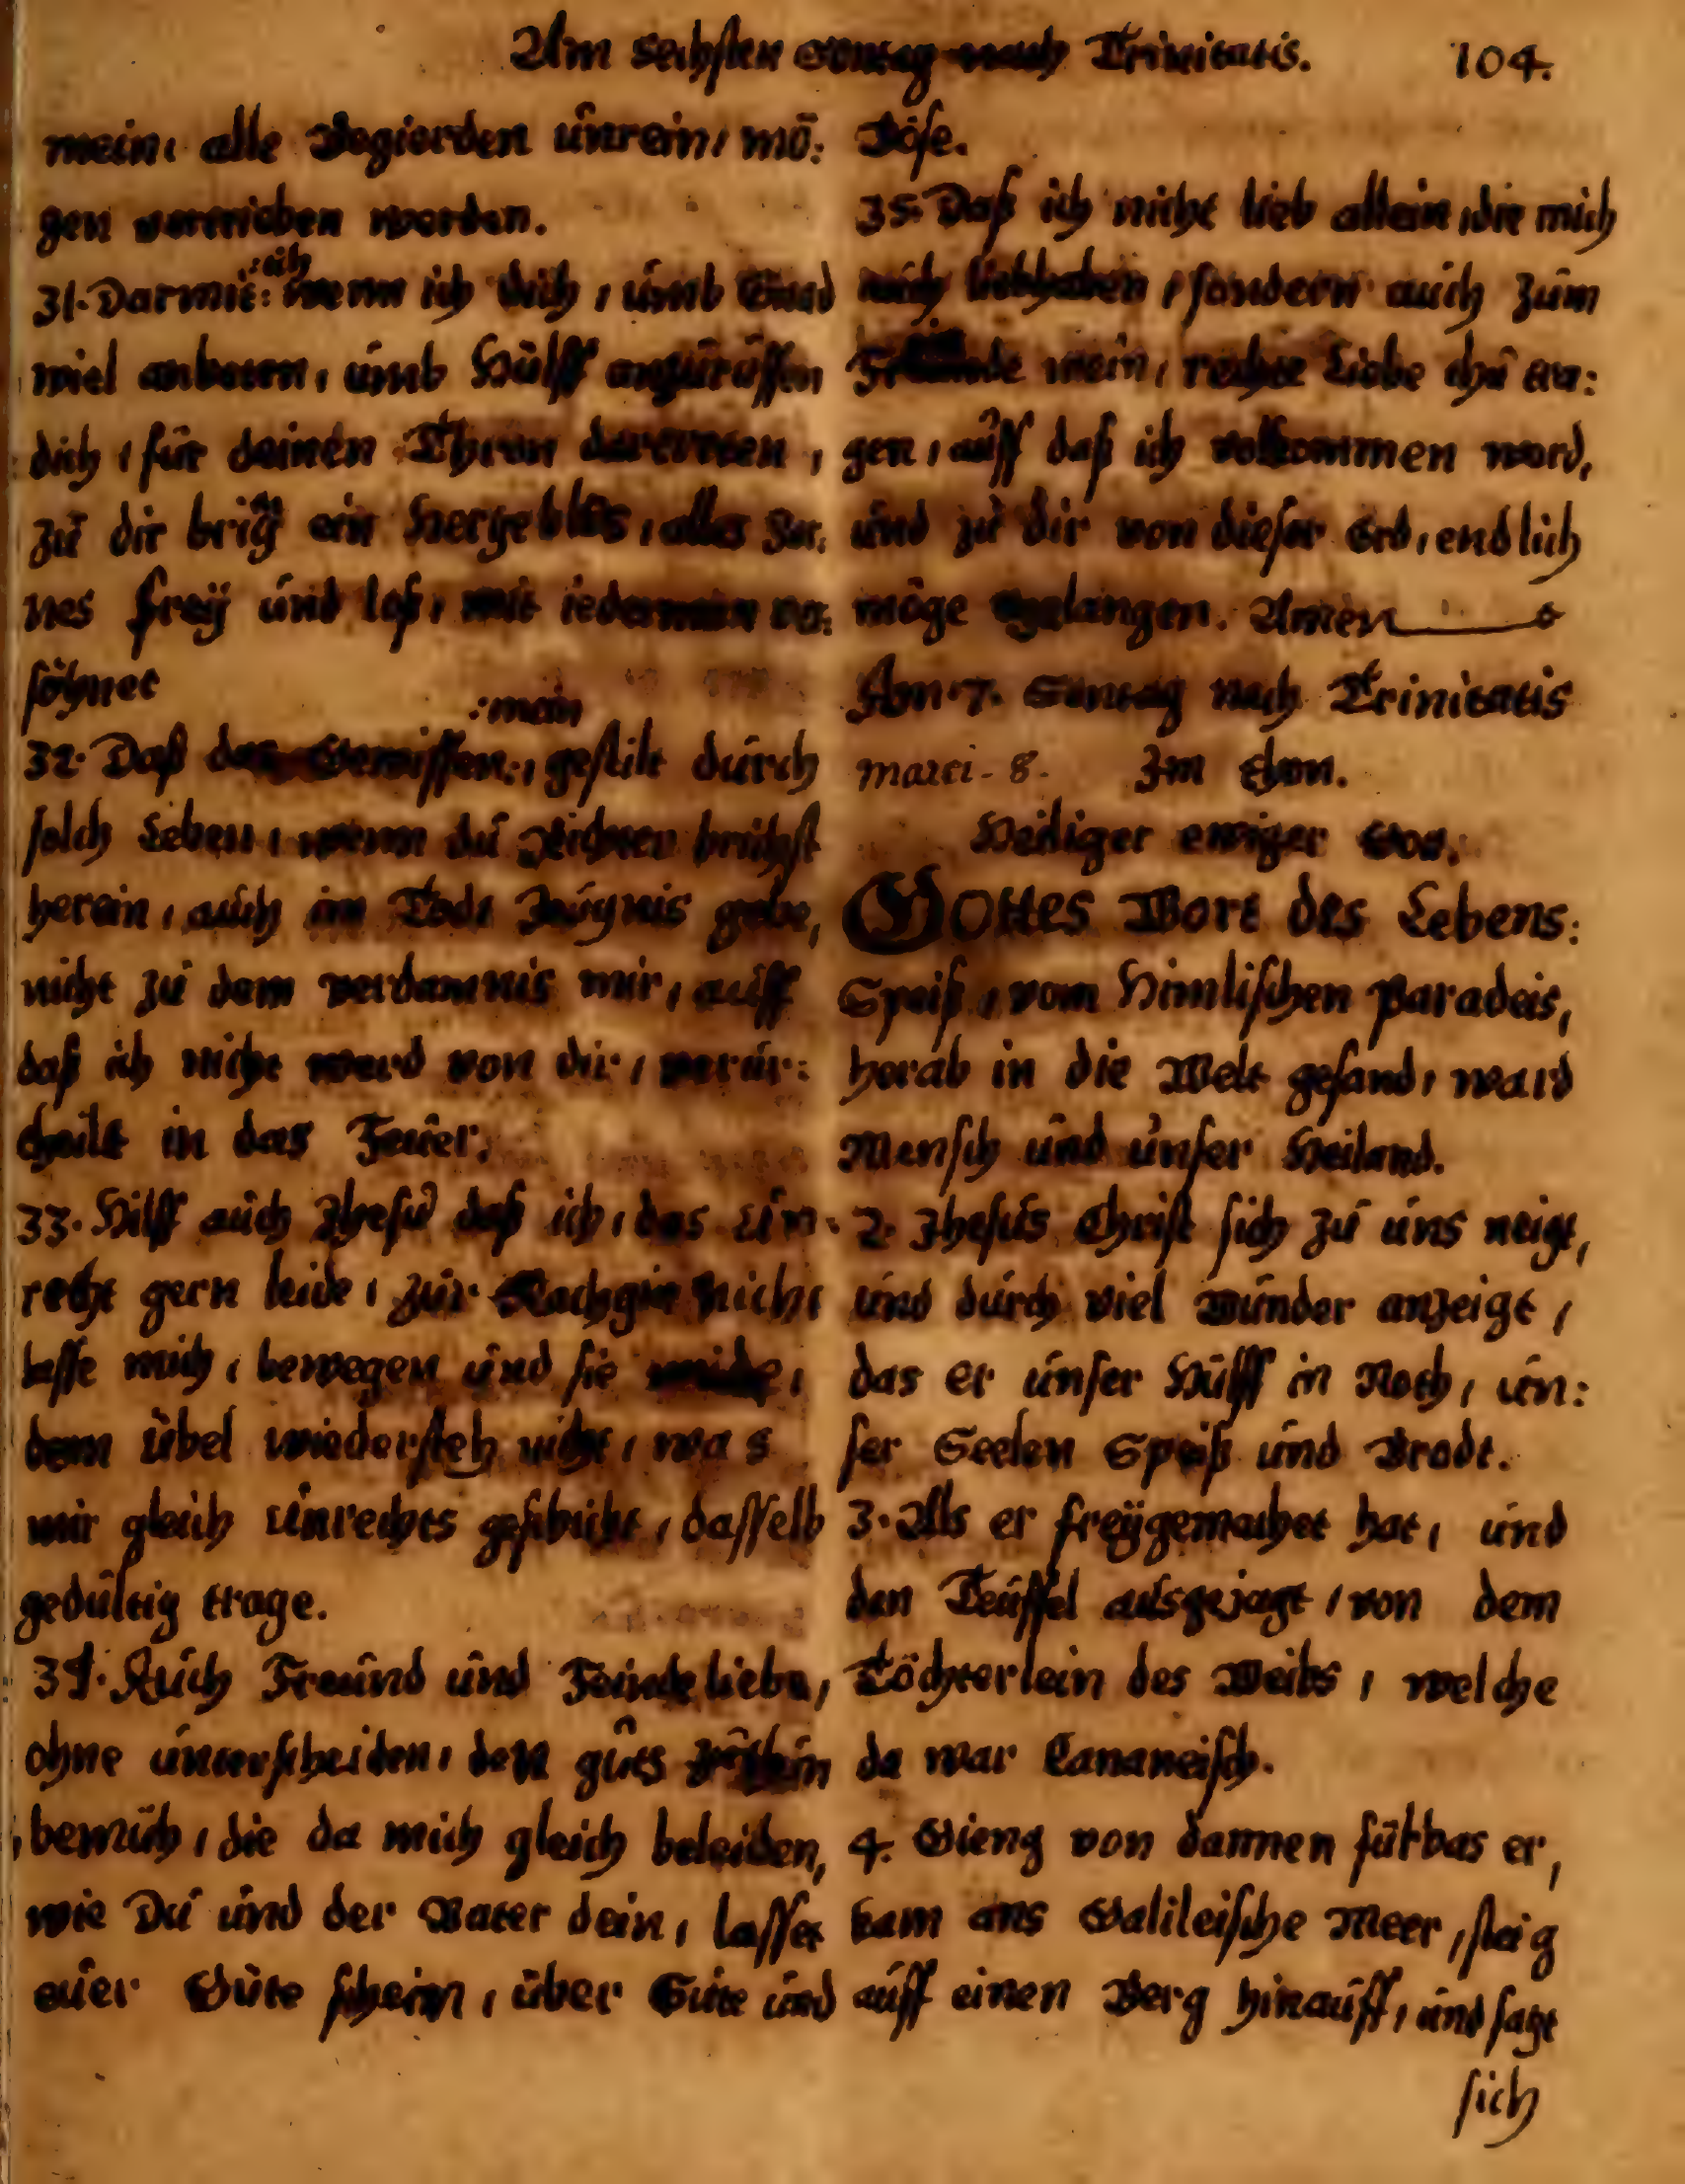 Am sechsten Sontag nach Trinitatis. 104.
mein, alle Begierden unrein, mö:
gen vertrieben werden.
31. Darmit: wenn ich dich, umb Gnad
wiel anbeten, umb Hülff anzuruffen
dich, für deinen Thron dartreten,
zu dir bring ein Hertze blos, alles Zor:
nes frey und loß, mit iederman ver:
söhnet
:mein
32. Daß das Gewissen:, gestilt durch
solch Leben, wenn du Richter brichst
herein, auch im Tode Zeugnis gebe,
nicht zu dem verdamnis mir, auff
daß ich nicht werd von dir, verur:
theilt in das Feuer.
33. Hilff auch Jhesu daß ich, das Un:
recht gern leide, zur Rachgir nicht
lasse mich, bewegen und sie meide,
dem übel wiedersteh nicht, was
mir gleich Unrechts geschicht, dasselb
gedultig trage.
34. Auch Freund und Feinde liebe,
ohne unterscheiden, den guts zuthun
bemüh, die da mich gleich beleiden,
wie Du und der Vater dein, lasset
euer Güte schein, über Gute und
Böse.
35. Daß ich nicht lieb allein, die mich
mich liebhaben, sondern auch zum
mein, rechte Liebe thu tra:
gen, auff daß ich vollkommen werd,
und zu dir von dieser Erd, endlich
möge gelangen. Amen
Am 7. Sontag nach Trinitatis
Marci. 8. Im Thon.
Heiliger ewiger Gott.
Gottes Wort des Lebens:
Speiß, vom Himlischen Paradeis,
herab in die Welt gesand, ward
Mensch und unser Heiland.
2. Jhesus Christ sich zu uns neigt,
und durch viel Wunder anzeigt,
das er unser Hülff in Noth, un:
ser Seelen Speiß und Brodt.
3. Als er freygemachet hat, und
den Teuffel ausgejagt, von dem
Töchterlein des Weibs, welche
da war Cananeisch.
4. Gieng von dannen fürbas er,
kam ans Galileische Meer, steig
auff einen Berg hinauff, und satzt
sich